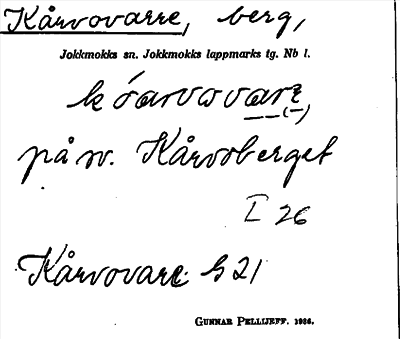 Kårvovarre, berg,
Jokkmokks sn. Jokkmokks lappmarks tg. Nb l.
kóarvovarɛ
(-)
på sv. Kårvoberget
I 26
Kårvovare G 21
GUNNAR PELLIJEFF. 1986.